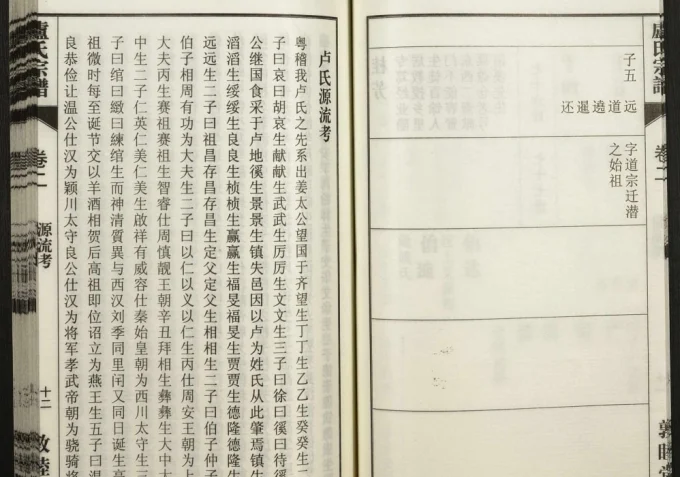 盧氏宗譜
卷二
敦睦堂
子五
远道遶暹还
字道宗迁潜
之始祖
卢氏源流考
粤稽我卢氏之先系出姜太公望国于齐望生丁丁生乙乙生癸癸生二
子曰哀曰胡哀生献献生武武生厉厉生文文生三子曰徐曰徯曰待徯
公继国食采于卢地徯生景景生镇失邑因以卢为姓氏从此肇焉镇生
滔滔生绥绥生良良生桢桢生赢赢生福旻福旻生贾贾生德隆德隆生
远远生二子曰祖昌存昌存昌生定父定父生相相生二子曰伯子仲子
伯子相周有功为大夫生二子曰以仁以义以仁生丙仕周安王朝为上
大夫丙生赛祖赛祖生智睿仕周慎靓王朝辛丑拜相生彝彝生大中大
中生二子仁英仁美仁美生啟祥有威容仕秦始皇朝为西川太守生三
子曰绾曰緻曰練绾生而神清質異与西汉刘季同里闬又同日诞生高
祖微时每至诞节交以羊酒相贺后高祖即位诏立为燕王生五子曰温
良恭俭让温公仕汉为颖川太守良公仕汉为将军孝武帝朝为骁骑将
盧氏宗譜
卷二
源流考
十二
敦睦